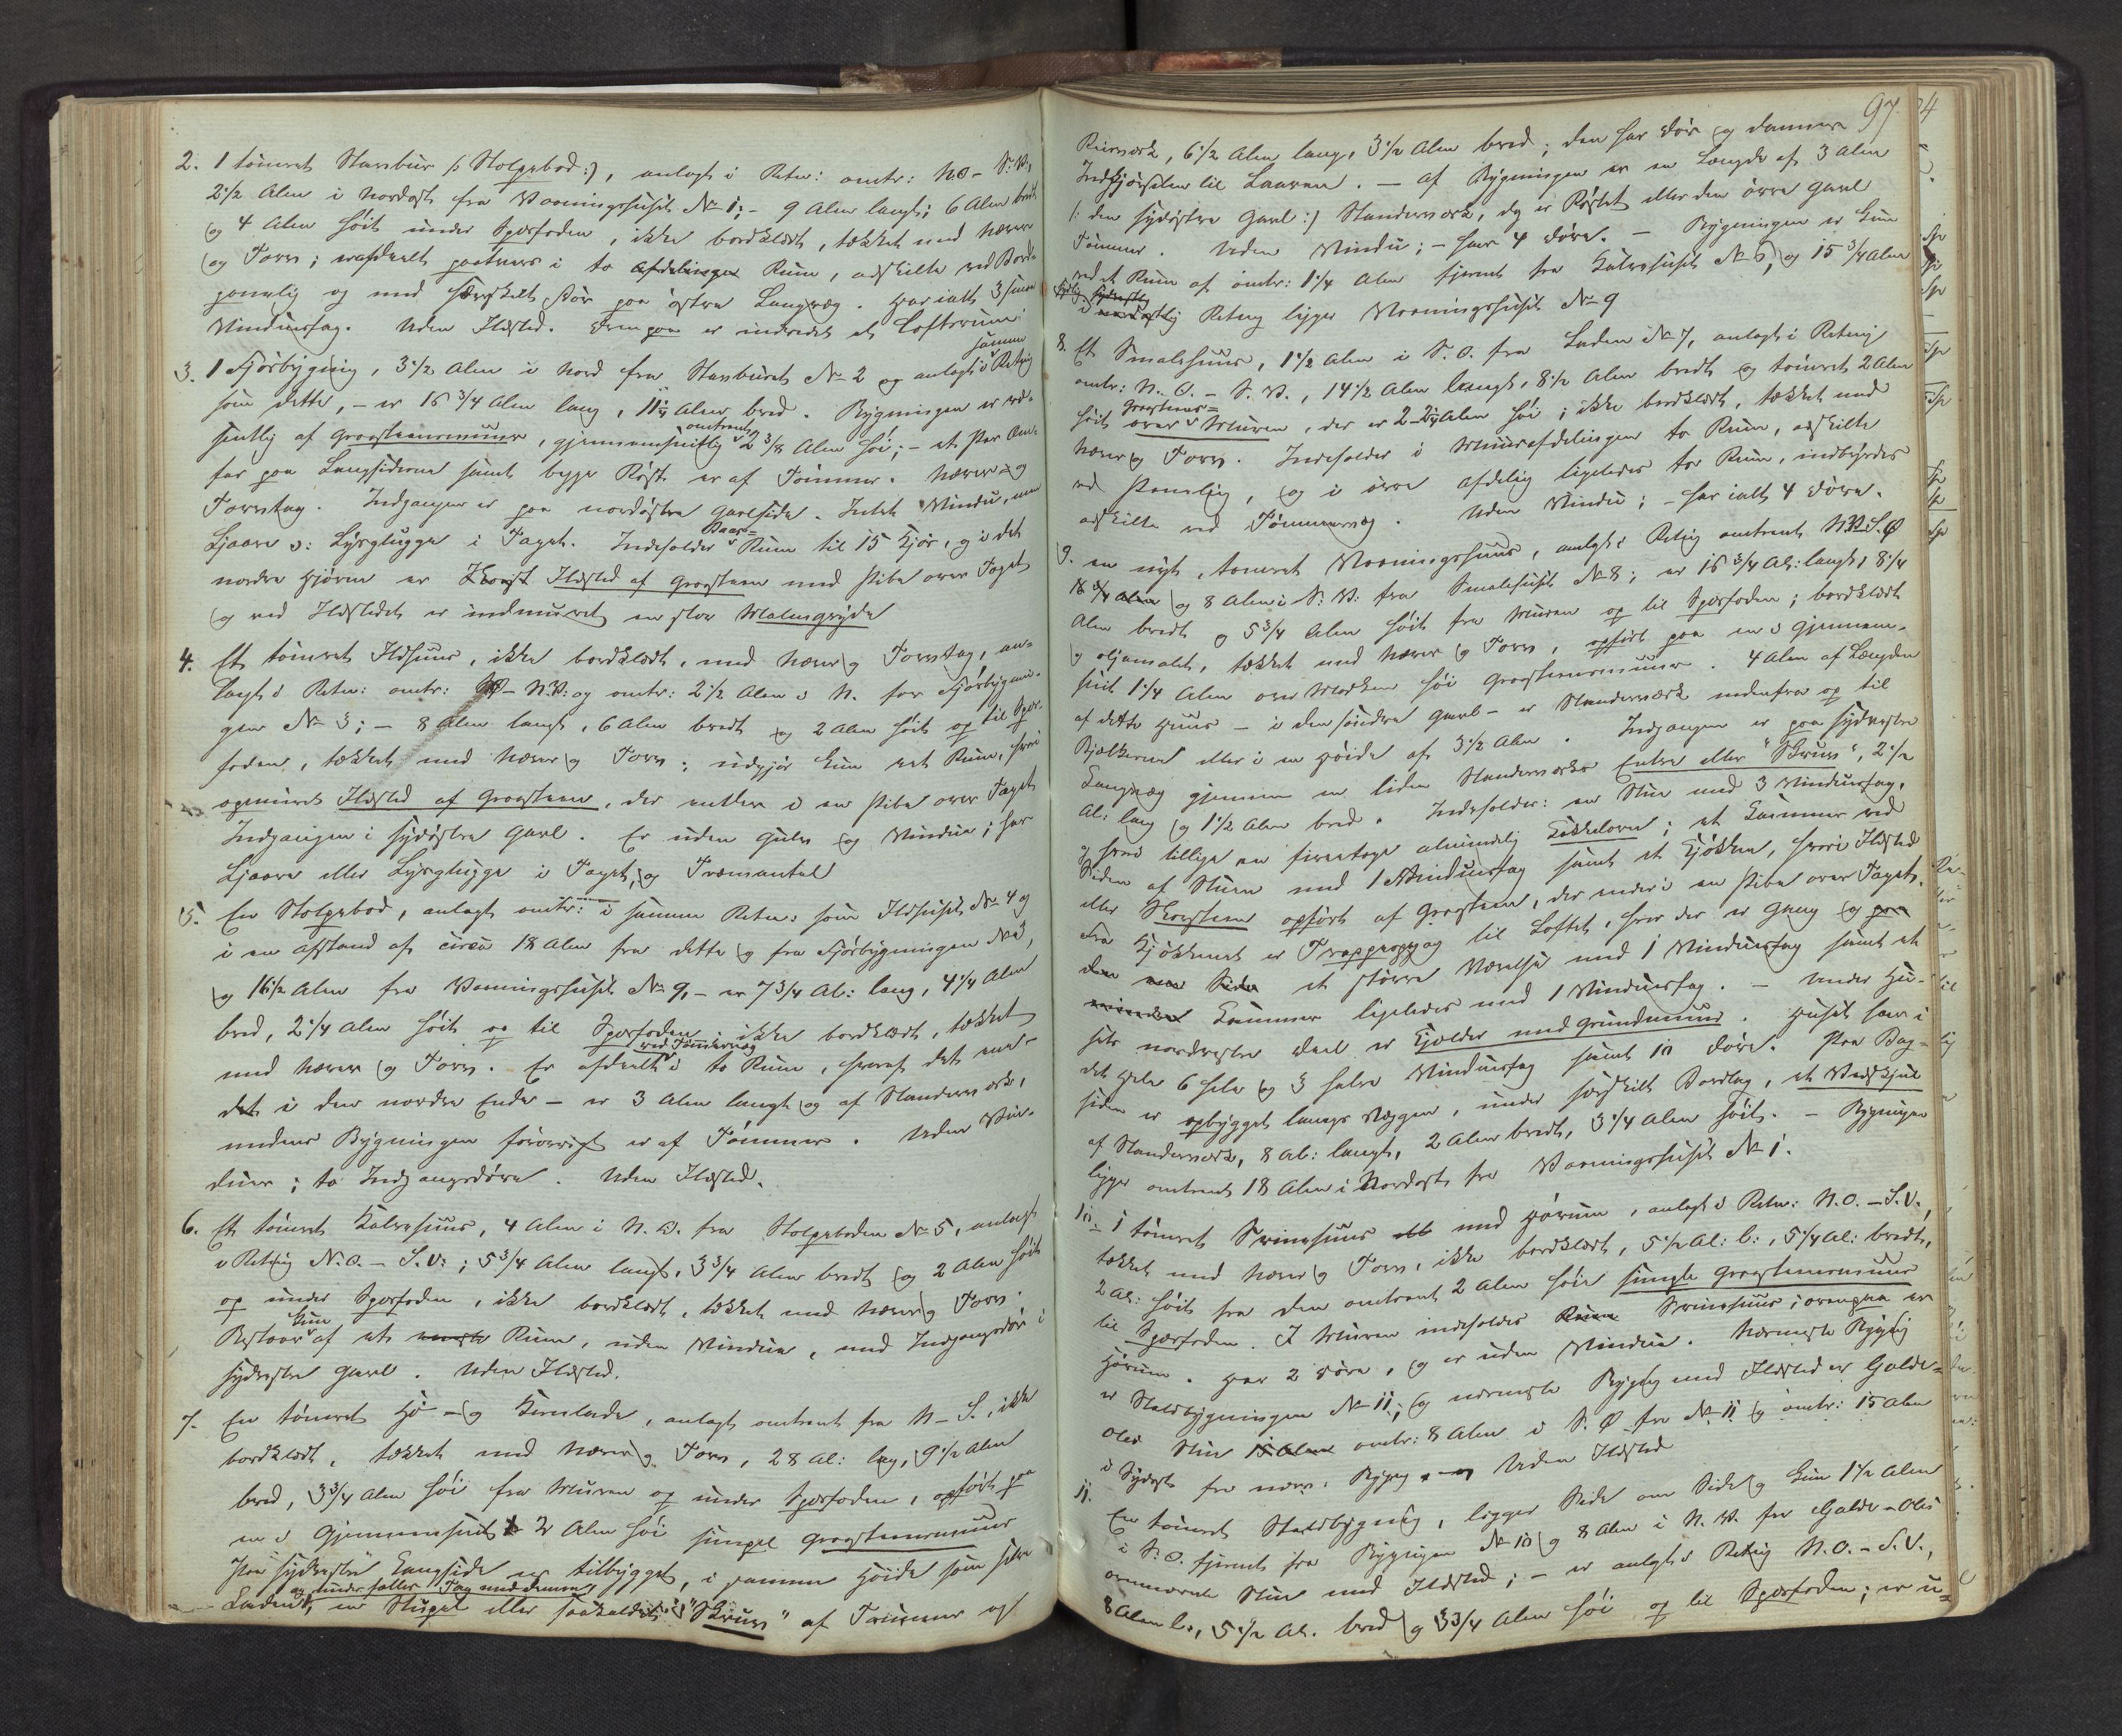 2. 1 tömret Stavbur /: Stolpebod :/, anlagt i Retn: omtr: N.O - S.V,
2 1/2 Alen i Nordost fra Vaaningshuset No 1; - 9 Alen langt; 6 Alen bredt
og 4 Alen höit under Spærfoden, ikke bordklædt, tækket med Næver
og Torv; er afdeelt i to Afdelinger Rum, adskilte ved Bord-
panelig og med særskilt Dör paa östre Langvæg. Har ialt 3 smaa
Vinduesfag. Uden Ildsted. Ovenpaa er indredet et Loftsrum.
3. 1 Fjösbygnig, 3 1/2 Alen i Nord fra Stavburet No 2 og anlagt i samme Retnig
som dette, - er 15 3/4 Alen lang, 11 1/4 Alen bred. Bygningen er væ-
sentlig af Graasteensmuur, gjennemsnitlig omtrent 2 3/8 Alen höi; - et Par Om-
far paa Langsiderne samt begge Röst er af Tömmer. Næver og
Torvtag. Indgangen er paa nordöstre Gavlside. Intet Vindu, men
Ljaare ɔ: Lysglugge i Taget. Indeholder Baas- Rum til 15 Kjör, og i det
nordre Hjörne er Ildsted af Graasteen med Pibe over Taget
og ved Ildstedet er indmuret en stor Malmgryde
4. Et tömret Ildhuus, ikke bordklædt, med Næver og Torvtag, an-
lagt i Retn: omtr: - N.V: og omtr: 2 1/2 Alen i N. for Fjösbygnin-
gen No 3; - 8 Alen langt, 6 Alen bredt og 2 Alen höit op til Spær-
foden, tækket med Næver og Torv; udgjör kun eet Rum, hvori
opmuret Ildsted af Graasteen, der ender i en Pibe over Taget
Indgangen i sydöstre Gavl. Er uden Gulv og Vindue; har
Ljaare eller Lysglugge i Taget, og Træmantel
5. En Stolpebod, anlagt omtr: i samme Retn: som Ildhuset No 4 og
i en Afstand af circa 18 Alen fra dette og fra Fjösbygningen No 3,
og 16 1/2 Alen fra Vaaningshuset No 9, - er 7 3/4 Al: lang, 4 1/4 Alen
bred, 2 1/4 Alen höit op til Spærfoden, ikke bordklædt, tækket
med Næver og Torv. Er afdeelt ved Tömmervæg i to Rum, hvoraf det ene -
det i den nordre Ende - er 3 Alen langt og af Standerværk,
medens Bygningen forövrigt er af Tömmer. Uden Vin-
duer; to Indgangsdöre. Uden Ildsted.
6. Et tömret Kalvehuus, 4 Alen i N.O. fra Stolpeboden No 5, anlagt
i Retnig N.O. - S.V.; 5 3/4 Alen langt, 3 3/4 Alen bredt og 2 Alen höit
op under Spærfoden, ikke bordklædt, tækket med Næver og Torv.
Bestaar kun af et Rum, uden Vindue, med Indgangsdör i
sydvestre Gavl. Uden Ildsted.
7. En tömret Hö- og Kornlade, anlagt omtrent fra N - S., ikke
bordklædt, tækket med Næver og Torv, 28 Al: lang, 9 1/2 Alen
bred, 3 3/4 Alen höi fra Muren op under Spærfoden, opfört paa
en i Gjennemsnit 2 Alen höi simpel Graasteensmuur
Paa sydvestre Langside er tilbygget, i samme Höide som selve
og under fælles Tag med denne,
Laden, en Skygel eller saakaldet "Skruv" af Tömmer og
97
Reisværk, 6 1/2 Alen lang, 3 1/2 Alen bred; den har Dör og danner
Indkjörselen til Laaven. - Af Bygningen er en Længde af 3 Alen
/: den sydöstre Gavl :/ Standerværk, dog er Röstet eller den övre Gavl
Tömmer. Uden Vindu; - har 4 Döre. - Bygningen er kun
ved et Rum af omtr: 1 1/4 Alen fjernet fra Kalvehuset No 6, og 15 3/4 Alen
i sydlig Retnig ligger Vaaningshuset No 9
8. Et Smalehuus, 1 1/2 Alen i S.O. fra Laden No 7, anlagt i Retnig
omtr: N.O. - S.V., 14 1/2 Alen langt, 8 1/2 Alen bredt og tömret 2 Alen
höit over Graasteens- Muren, der er 2 - 2 1/4 Alen höi; ikke bordklædt, tækket med
Næver og Torv. Indeholder i Muurafdelingen to Rum, adskilte
ved Panelig, og i övre Afdelig ligeledes to Rum, indbyrdes
adskilte ved Tömmervæg. Uden Vindu; - har ialt 4 Döre.
9. en nyt, tömret Vaaningshuus, anlagt i Retnig omtrent N.V - S.Ø
16 3/4 Alen og 8 Alen i S.V. fra Smalehuset No 8; er 15 3/4 Al: langt, 8 1/4
Alen bredt og 5 3/4 Alen höit fra Muren op til Spærfoden; bordklædt
og oljemalet, tækket med Næver og Torv, opfört paa en i Gjennem-
snit 1 1/4 Alen over Marken höi Graasteensmuur. 4 Alen af Længden
af dette Huus - i den söndre Gavl - er Standerværk nedenfra op til
Bjælkerne eller i en Höide af 3 1/2 Alen. Indgangen er paa sydvestre
Langvæg gjennem en liden Standerværks Entré eller "Skruv", 2 1/2
Al: lang og 1 1/2 Alen bred. Indeholder: en Stue med 3 Vinduesfag,
og hvori tillige en treetages almindelig Kakkelovn; et Kammer ved
Siden af Stuen med 1 Vinduesfag samt et Kjökken, hvori Ildsted
eller Skorsteen opfört af Graasteen, der ender i en Pibe over Taget.
Fra Kjökkenet er Trappeopgang til Loftet, hvor der er Gang og paa
den ene Side et större Værelse med 1 Vinduesfag samt et
mindre Kammer ligeledes med 1 Vinduesfag. - Under Hu-
sets nordvestre Deel er Kjelder med Grundmuur. Huset har i
det Hele 6 hele og 3 halve Vinduesfag samt 10 Döre. Paa Bag-
siden er opbygget langs Væggen, under særskilt Bordtag, et Vedskjul
af Standerværk, 8 Al: langt, 2 Alen bredt, 3 1/4 Alen höit. - Bygnigen
ligger omtrent 18 Alen i Nordost fra Vaaningshuset No 1.
10. 1 tömret Sviinehuus med Hörum, anlagt i Retn: N.O. - S.V.,
tækket med Næver og Torv, ikke bordklædt, 5 1/2 Al: l:, 5 1/4 Al: bredt,
2 Al: höit fra den omtrent 2 Alen höie simple Graasteensmuur
til Spærfoden. I Muren indeholdes Rum Sviinehuus; ovenpaa er
Hörum. Har 2 Döre, og er uden Vindue. Nærmeste Bygnig
er Staldbygningen No 11; og nærmeste Bygnig med Ildsted er Galde-
Oles Stue 15 Alen omtr: 8 Alen i S.Ø fra No 11 og omtr: 15 Alen
i Sydost fra nærv. Bygnig. Uden Ildsted
11. En tömret Staldbygnig, ligger Side om Side og kun 1 1/2 Alen
i S.O. fjernet fra Bygnigen No 10 og 8 Alen i N.V. fra Galde-Oles
ovennævnte Stue med Ildsted; - er anlagt i Retnig N.O. - S.V.,
8 Alen l., 5 1/2 Al. bred og 3 3/4 Alen höi op til Spærfoden; er u-